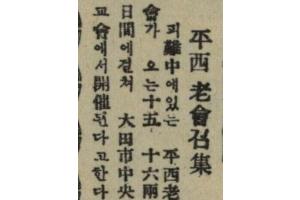 平西老會召集
피難中에있는 平西老
會가 오는十五、十六兩
日間에걸쳐 大田市中央
교會에서開催된다고한다